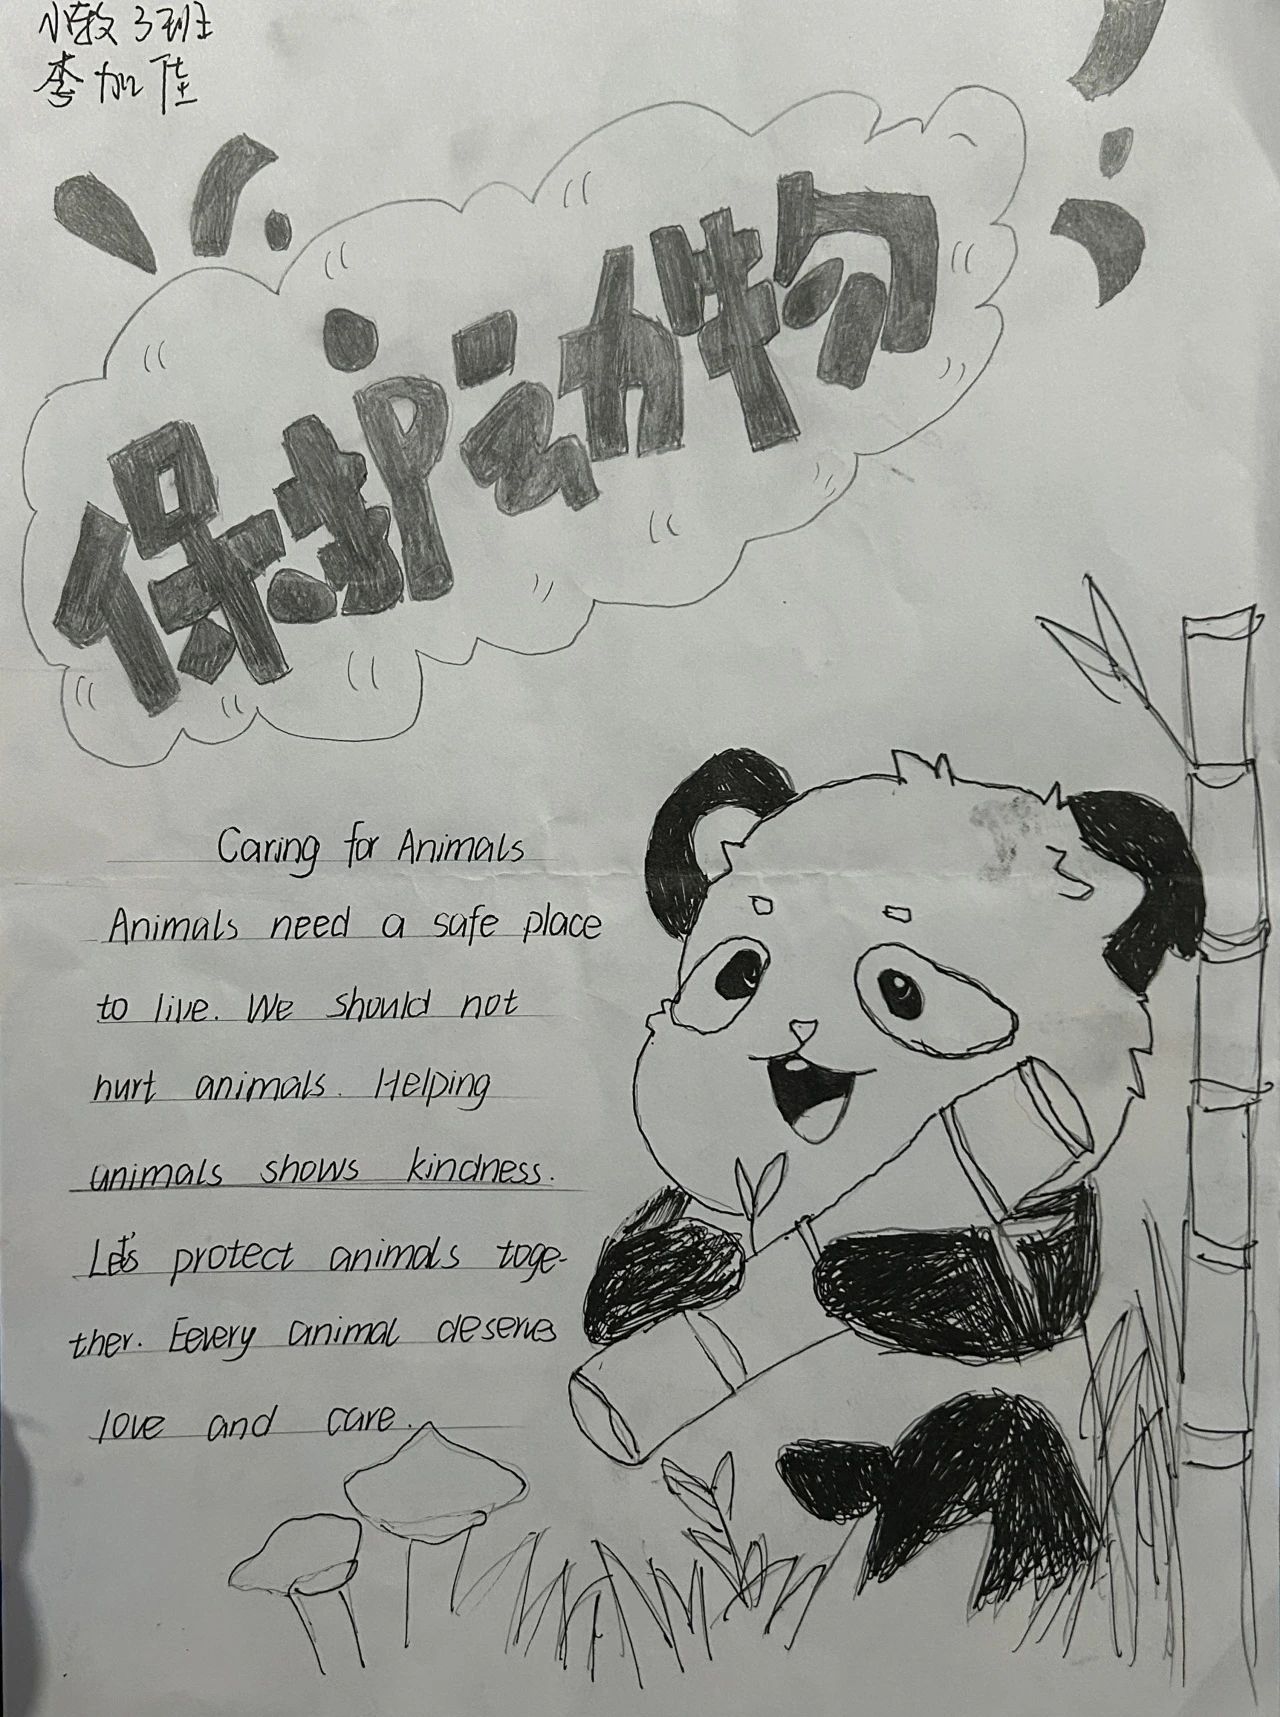 小教3班
李加佳
保护动物
Caring for Animals
Animals need a safe place
to live. We should not
hurt animals. Helping
animals shows kindness.
Let's protect animals toge-
ther. Eevery animal deserves
love and care.